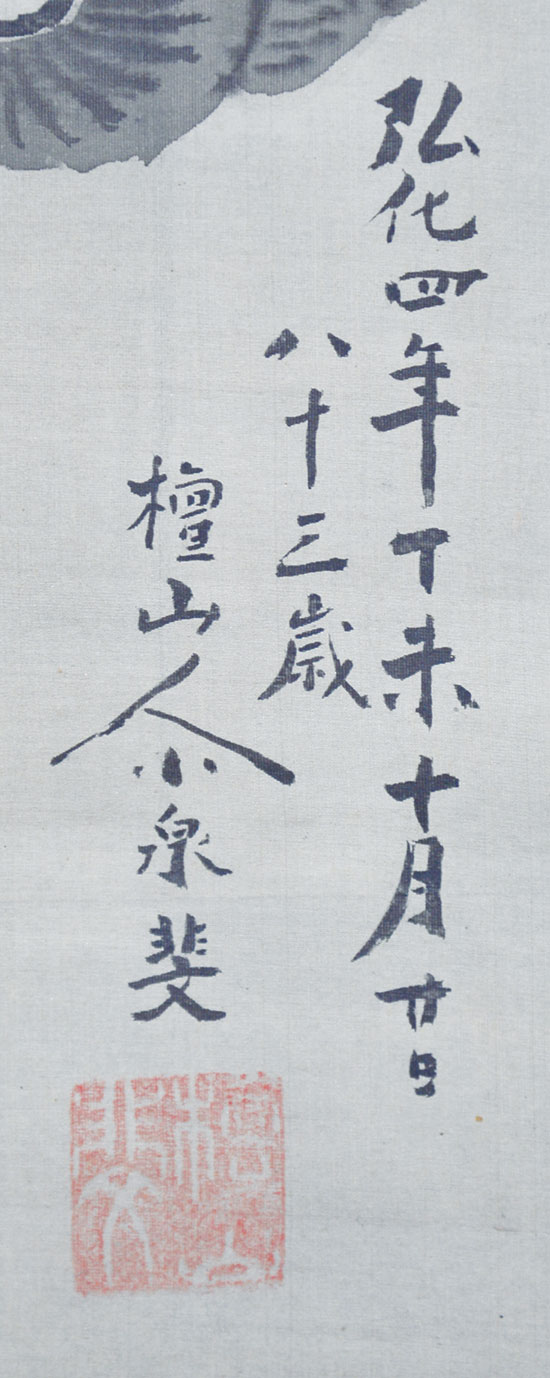 弘化四年丁未十月廿日
八十三歳
檀山人小泉斐
檀山
斐